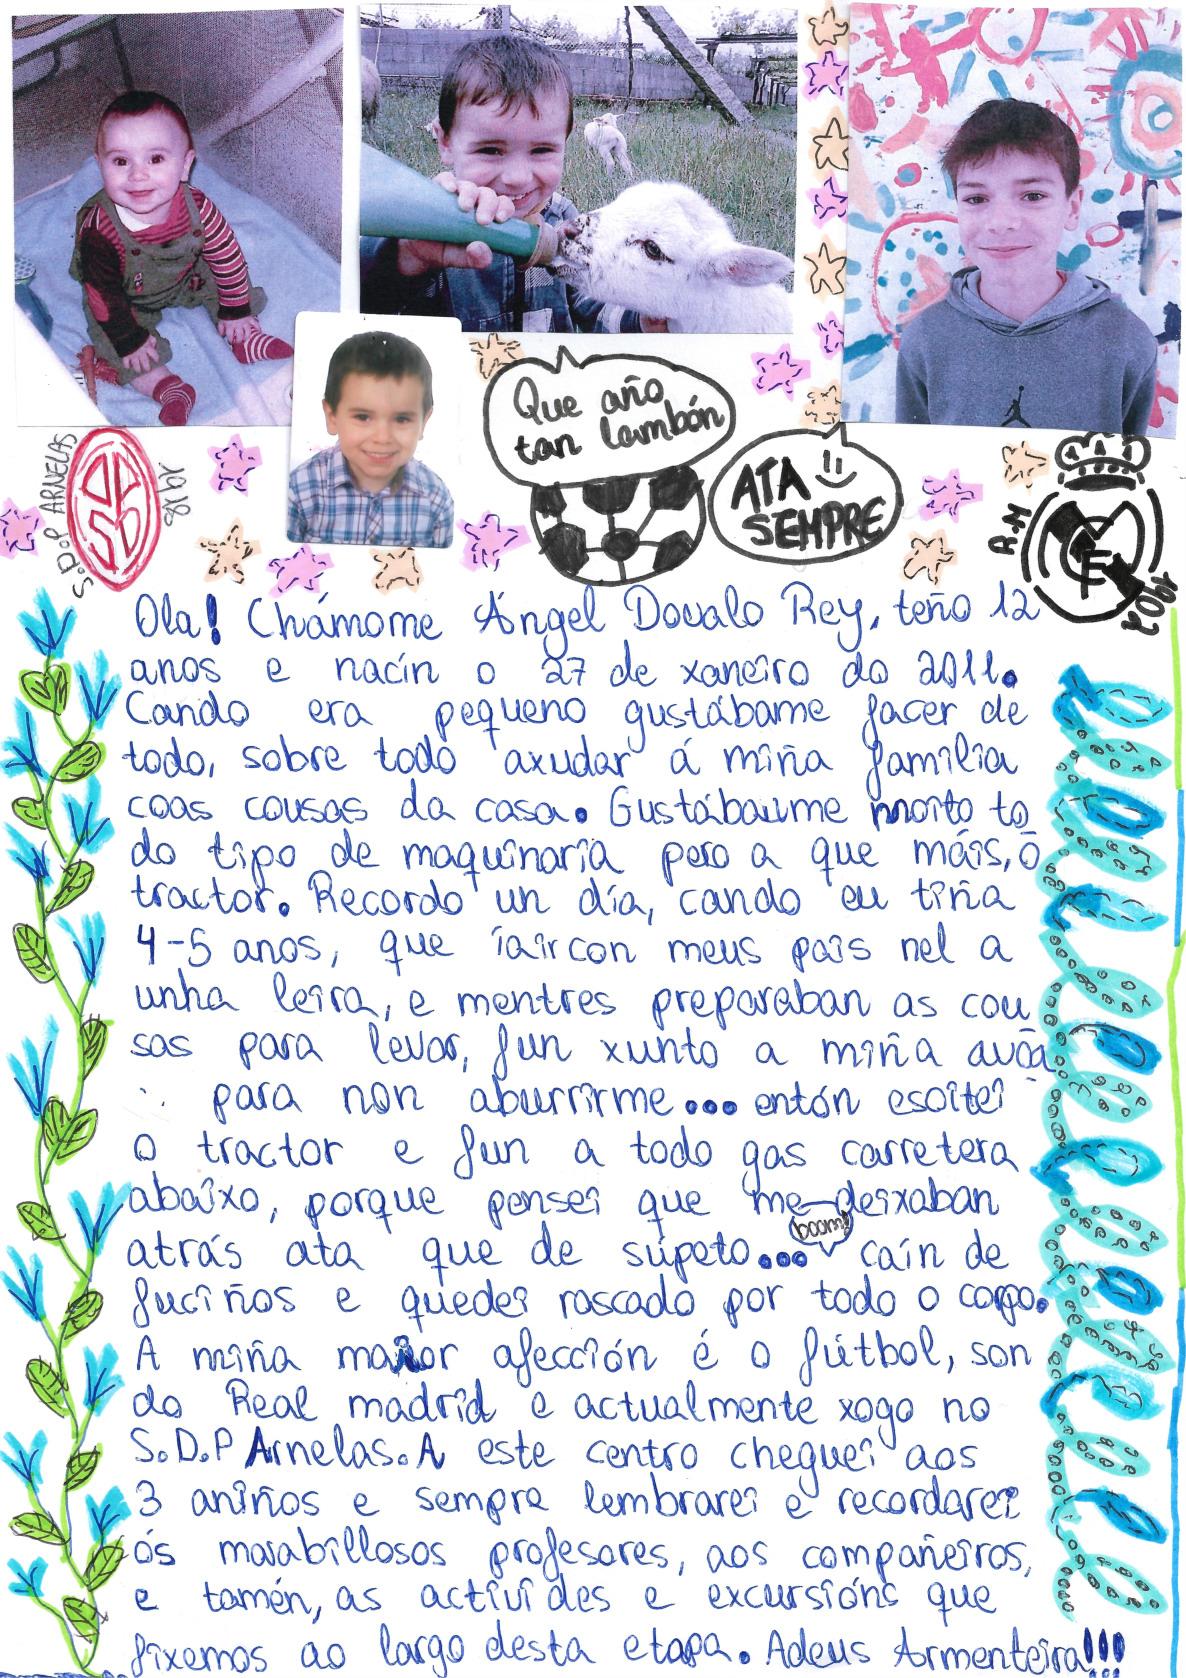 Que año
tan lambón
ATA
SEMPRE
S.D.P ARNELAS
1918
R.M
1902
Ola! Chámome Ángel Dovalo Rey, teño 12
anos e nacín o 27 de xaneiro do 2011.
Cando era pequeno gustábame facer de
todo, sobre todo axudar á miña familia
coas cousas da casa. Gustábame moito to
do tipo de maquinaria pero a que máis, o
tractor. Recordo un día, cando eu tiña
4-5 anos, que ía ir con meus pais nel a
unha leira, e mentres preparaban as cou
sas para levar, fun xunto a miña avoa
para non aburrirme... entón escoitei
o tractor e fun a todo gas carretera
abaixo, porque pensei que me deixaban
boom!
atrás ata que de súpeto... caín de
fuciños e quedei rascado por todo o corpo.
A miña maior afección é o fútbol, son
do Real madrid e actualmente xogo no
S.D.P Arnelas. A este centro cheguei aos
3 aniños e sempre lembrarei e recordarei
ós marabillosos profesores, aos compañeiros,
e tamén, as activides e excursións que
fixemos ao largo desta etapa. Adeus Armenteira!!!